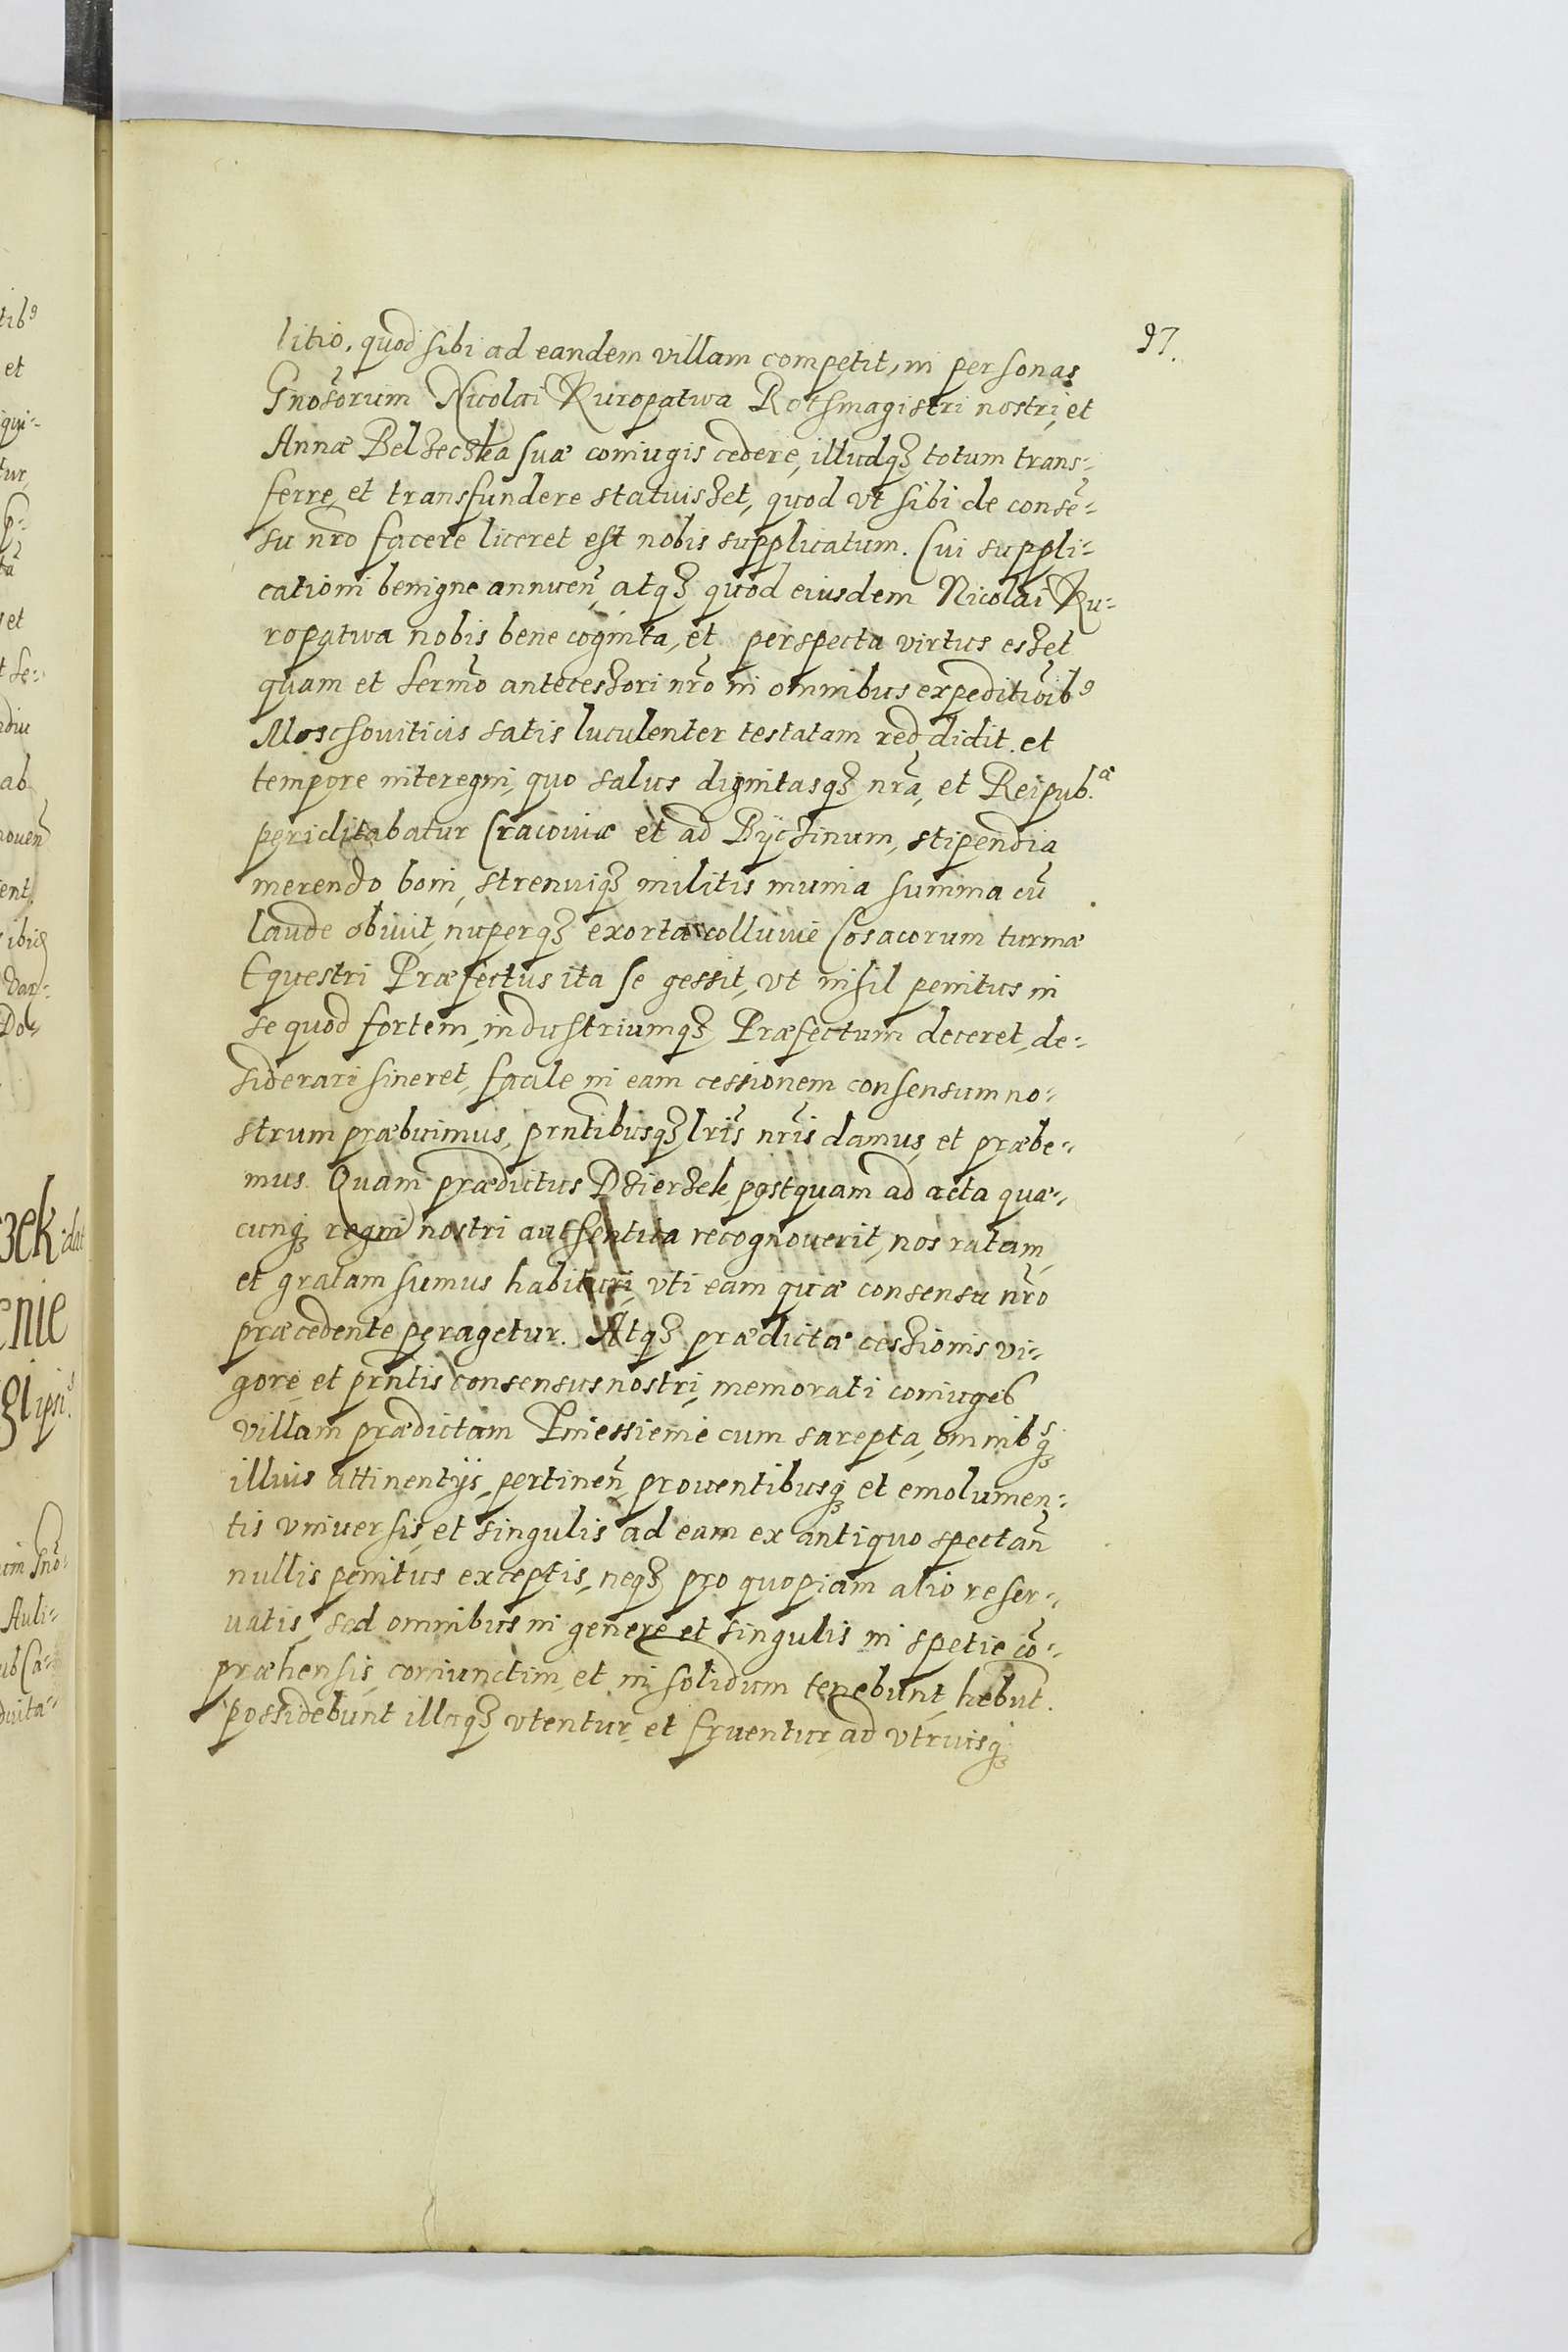 97.
litio, quod sibi ad eandem villam competit, in personas
Gnosorum Nicolai Kuropatwa Rothmagistri nostri, et
Annæ Belzeczka suæ coniugis cedere, illudq₃ totum trans=
ferre, et transfundere statuisset, quod vt sibi de consẽ=
su nr̃o facere liceret est nobis supplicatum. Cui suppli=
cationi benigne annuen̄, atq₃ quod eiusdem Nicolai Ku=
ropatwa nobis bene cognita, et perspecta virtus esset
quam et Sermo antecessori nr̃o in omnibus expeditioib⁹
Moschouiticis satis luculenter testatam reddidit. et
tempore interegni, quo salus dignitasq₃ nr̃a, et Reipub.æ
periclitabatur Cracouiæ et ad Byczinum, stipendia
merendo boni, strenuiq₃ militis munia summa cũ
laude obiuit, nuperq₃ exorta colluuie Cosacorum turmæ
Equestri Præfectus ita se gessit, vt nihil penitus in
se quod fortem, industriumq₃ Præfectum deceret, de=
siderari sineret, facile in eam cessionem consensum no=
strum præbuimus, prntibusq₃ lr̃is nr̃is damus, et præbe=
mus. Quam prædictus Dzierzek, postquam ad acta quæ=
cunq₃ regni nostri authentica recognouerit, nos ratam,
et gratam sumus habituri, vti eam quæ consensu nr̃o
præcedente peragetur. Atq₃ prædictæ cessionis vi=
gore, et prñtis consensus nostri, memorati coniuges
villam prædictam Pniessienie cum sarepta, omnib⁹q₃
illius attinentijs, pertinen̄ prouentibusq₃ et emolumen=
tis vniuersis, et singulis ad eam ex antiquo spectan̄
nullis penitus exceptis, neq₃ pro quopiam alio reser=
uatis, sed omnibus in genere et singulis in spetie cõ=
præhensis, coniunctim, et in solidum tenebunt, hebũt.
possidebunt illaq₃ vtentur, et fruentur, ad vtriusq₃